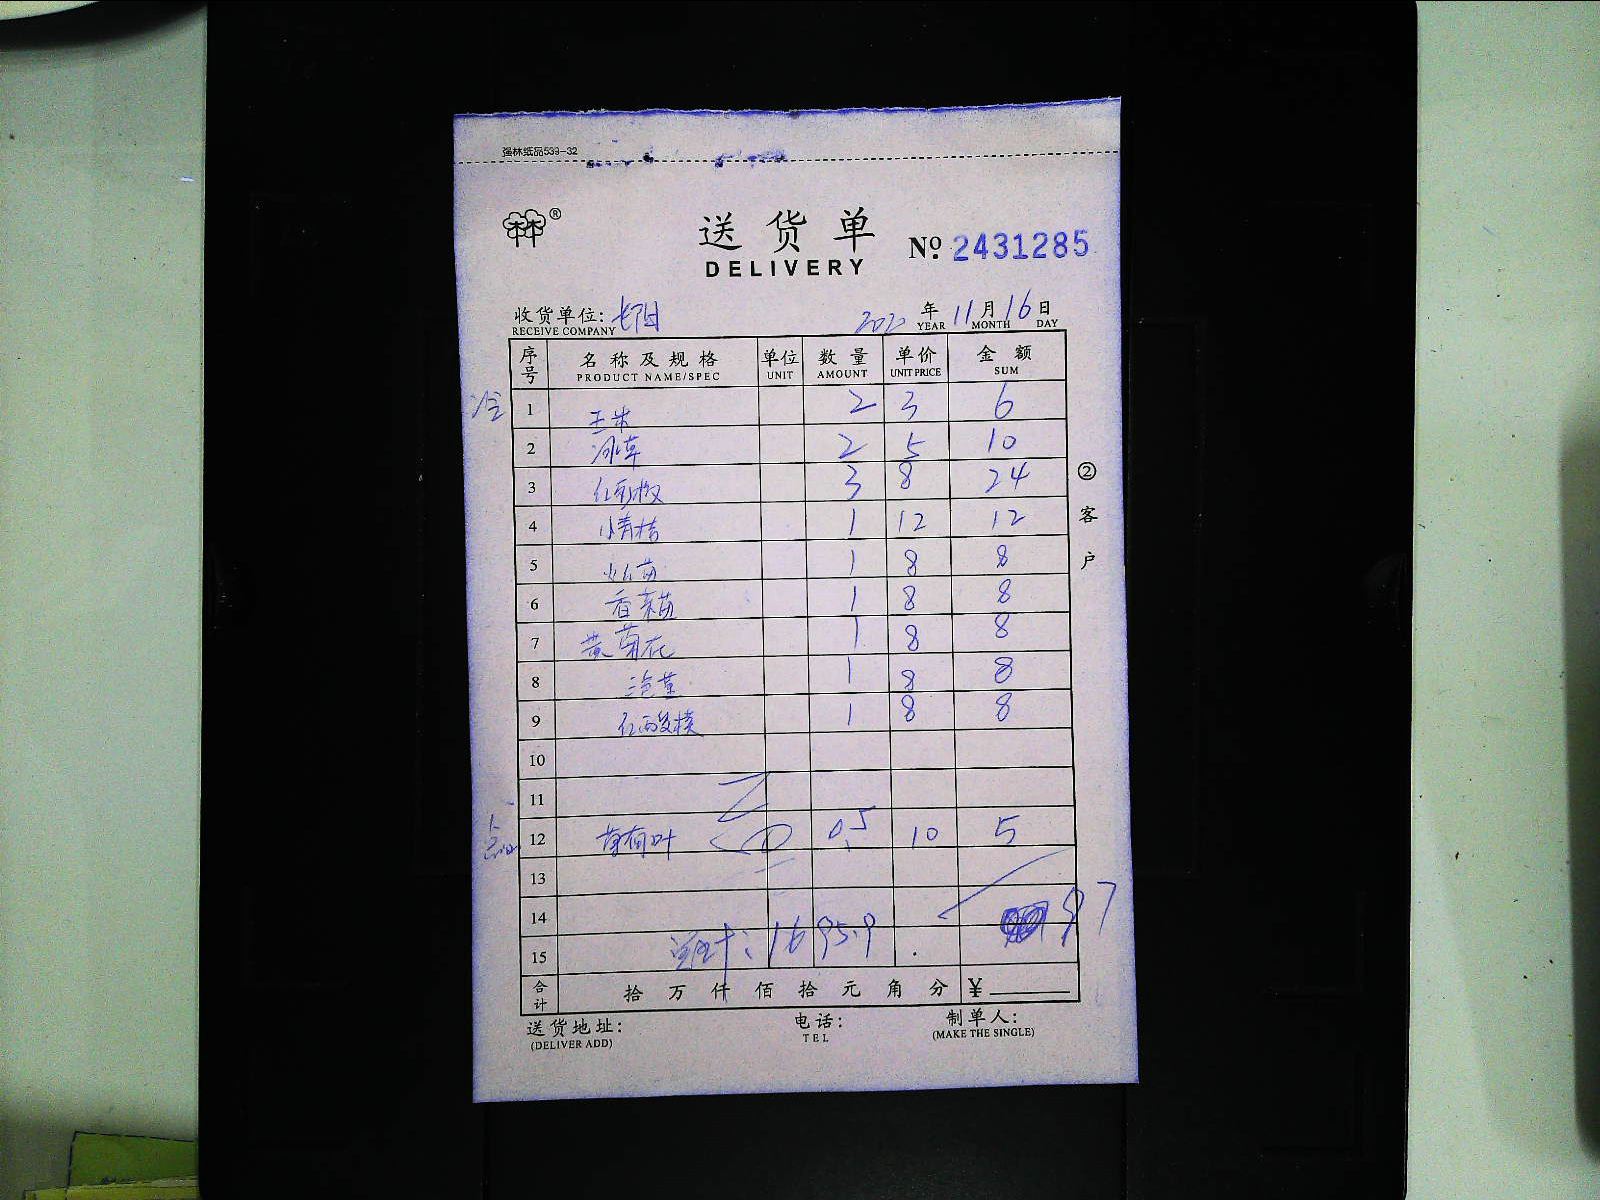 强林纸品539-32
林林®
送货单
DELIVERY
№ 2431285
收货单位:
RECEIVE COMPANY
年 11月16日
YEAR MONTH DAY
序号 名称及规格 单位 数量 单价 金额
PRODUCT NAME/SPEC UNIT AMOUNT UNIT PRICE SUM
冷 1 玉米 2 3 6
2 冰草 2 5 10
3 红彩椒 3 8 24
4 小青桔 1 12 12
5 苗 1 8 8
6 香菜苗 1 8 8
7 黄菊花 1 8 8
8 1 8 8
9 红酸模 1 8 8
10
11
12 薄荷叶 0.5 10 5
13
14 97
15 总计:1695.9
合计 拾 万 仟 佰 拾 元 角 分 ¥
送货地址: 电话: 制单人:
(DELIVER ADD) TEL (MAKE THE SINGLE)
②客户